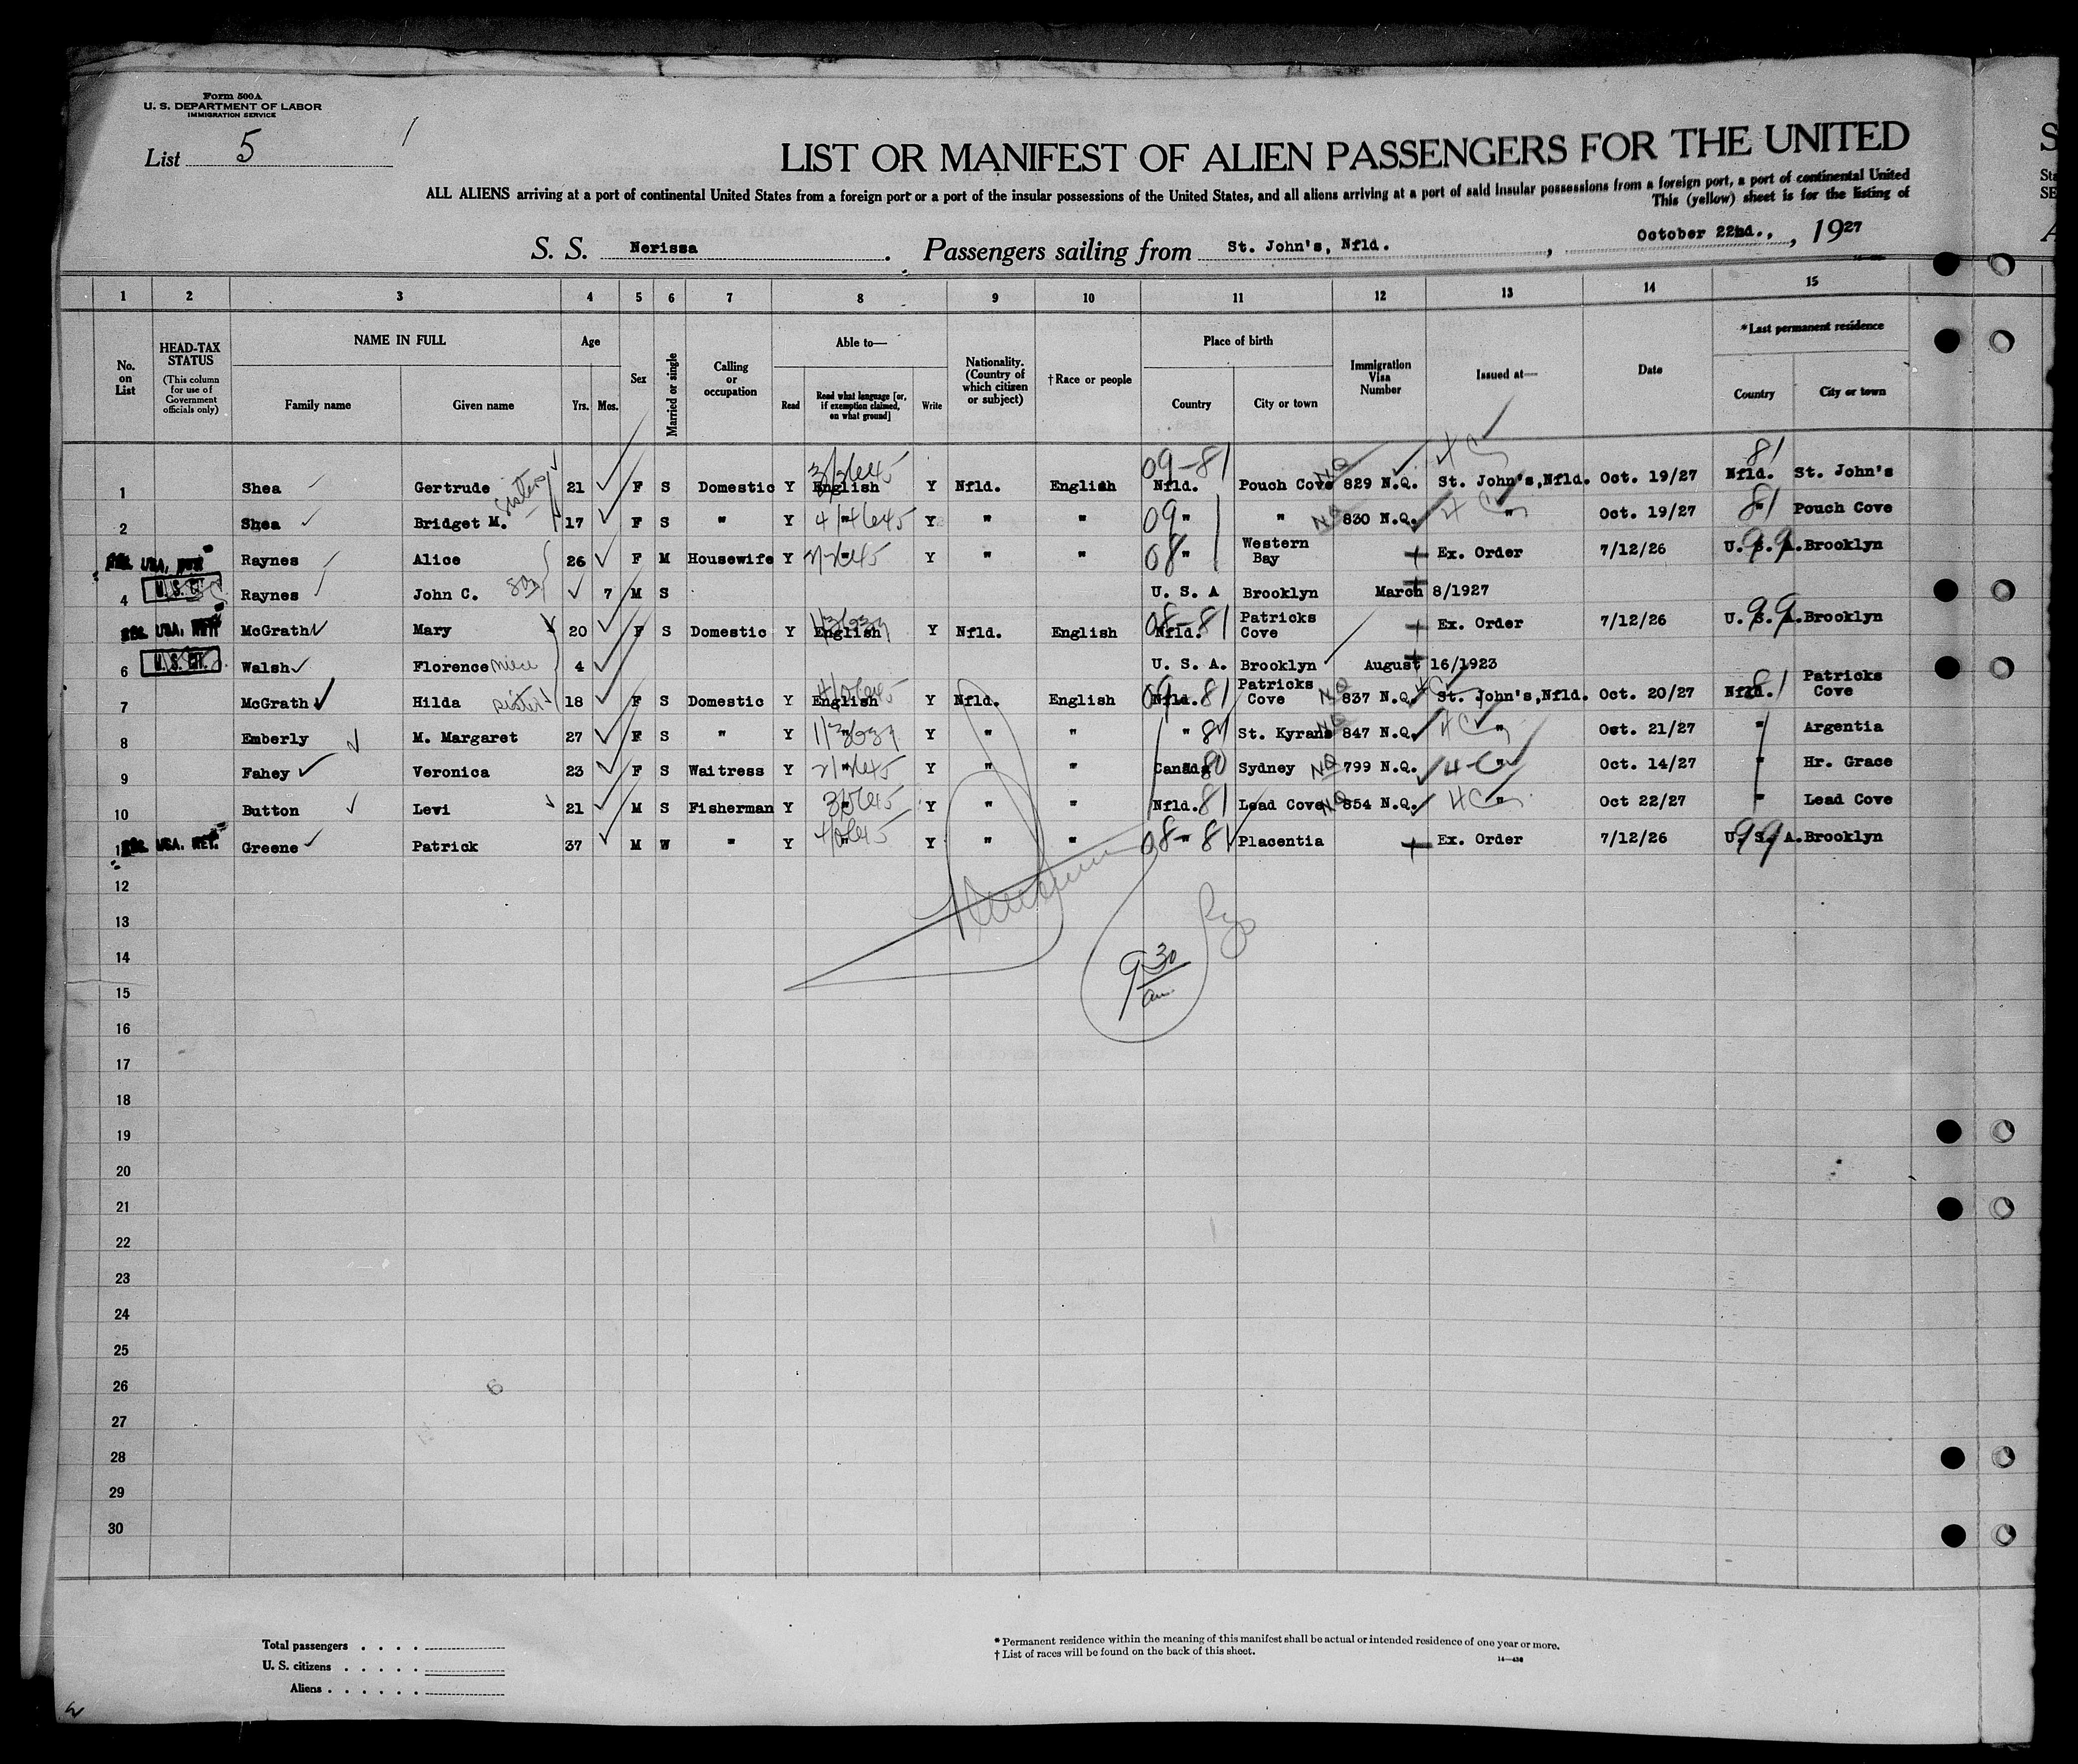 Form 500A
U. S. DEPARTMENT OF LABOR
IMMIGRATION SERVICE
List 5
LIST OR MANIFEST OF ALIEN PASSENGERS FOR THE UNITED
ALL ALIENS arriving at a port of continental United States from a foreign port or a port of the insular possessions of the United States, and all aliens arriving at a port of said insular possessions from a foreign port, a port of continental United
This (yellow) sheet is for the listing of
S. S. Nerissa. Passengers sailing from St. John's, Nfld., October 22nd., , 1927
1 2 3 4 5 6 7 8 9 10 11 12 13 14 15
No. on List HEAD-TAX STATUS (This column for use of Government officials only) NAME IN FULL Family name Given name Age Yrs. Mos. Sex Married or single Calling or occupation Able to— Read Read what language [or, if exemption claimed, on what ground] Write Nationality. (Country of which citizen or subject) †Race or people Place of birth Country City or town Immigration Visa Number Issued at— Date *Last permanent residence Country City or town
1 Shea Gertrude sisters 21 F S Domestic Y English Y Nfld. English 09-81 Nfld. Pouch Cove NQ 829 N.Q. St. John's,Nfld. Oct. 19/27 81 Nfld. St. John's
2 Shea Bridget M. 17 F S " Y " Y " " 09 " " NQ 830 N.Q. " Oct. 19/27 81 " Pouch Cove
USA. Raynes Alice 26 F M Housewife Y " Y " " 08 " Western Bay Ex. Order 7/12/26 99 U. S. A. Brooklyn
4 U. S. CIT. Raynes John C. son 7 M S U. S. A Brooklyn March 8/1927
USA. RET. McGrath Mary 20 F S Domestic Y English Y Nfld. English 08-81 Nfld. Patricks Cove Ex. Order 7/12/26 99 U. S. A. Brooklyn
6 U. S. CIT. Walsh Florence niece 4 U. S. A. Brooklyn August 16/1923
7 McGrath Hilda sister 18 F S Domestic Y English Y Nfld. English 09 81 Nfld. Patricks Cove NQ 837 N.Q. St. John's,Nfld. Oct. 20/27 81 Nfld. Patricks Cove
8 Emberly M. Margaret 27 F S " Y " Y " " " 81 St. Kyrans NQ 847 N.Q. " Oct. 21/27 " Argentia
9 Fahey Veronica 23 F S Waitress Y " Y " " Canada 80 Sydney NQ 799 N.Q. " Oct. 14/27 " Hr. Grace
10 Button Levi 21 M S Fisherman Y " Y " " Nfld. 81 Lead Cove NQ 854 N.Q. " Oct 22/27 " Lead Cove
USA. RET. Greene Patrick 37 M W " Y " Y " " 08-81 " Placentia Ex. Order 7/12/26 99 U. S. A. Brooklyn
12
13
9 30 am
14
15
16
17
18
19
20
21
22
23
24
25
26
27
28
29
30
Total passengers . . . .
U. S. citizens . . . . .
Aliens . . . . . .
* Permanent residence within the meaning of this manifest shall be actual or intended residence of one year or more.
† List of races will be found on the back of this sheet.